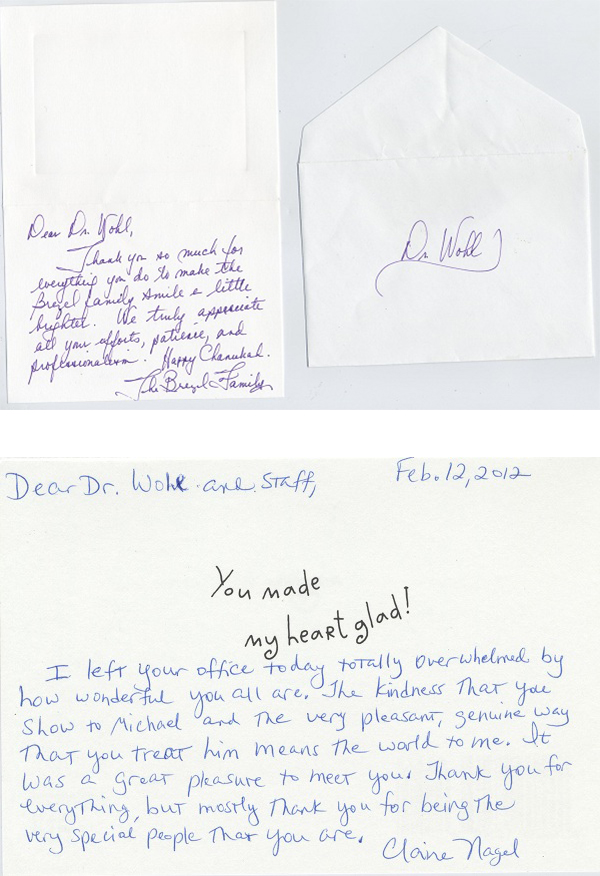 Dear Dr. Wohl,
Thank you so much for
everything you do to make the
Brezel family smile a little
brighter. We truly appreciate
all your efforts, patience, and
professionalism. Happy Chanukah.
The Brezel Family
Dr. Wohl
Dear Dr. Wohl and Staff,
Feb. 12, 2012
You made
my heart glad!
I left your office today totally overwhelmed by
how wonderful you all are. The kindness that you
show to Michael and the very pleasant, genuine way
that you treat him means the world to me. It
was a great pleasure to meet you. Thank you for
everything, but mostly thank you for being the
very special people that you are.
Claire Nagel